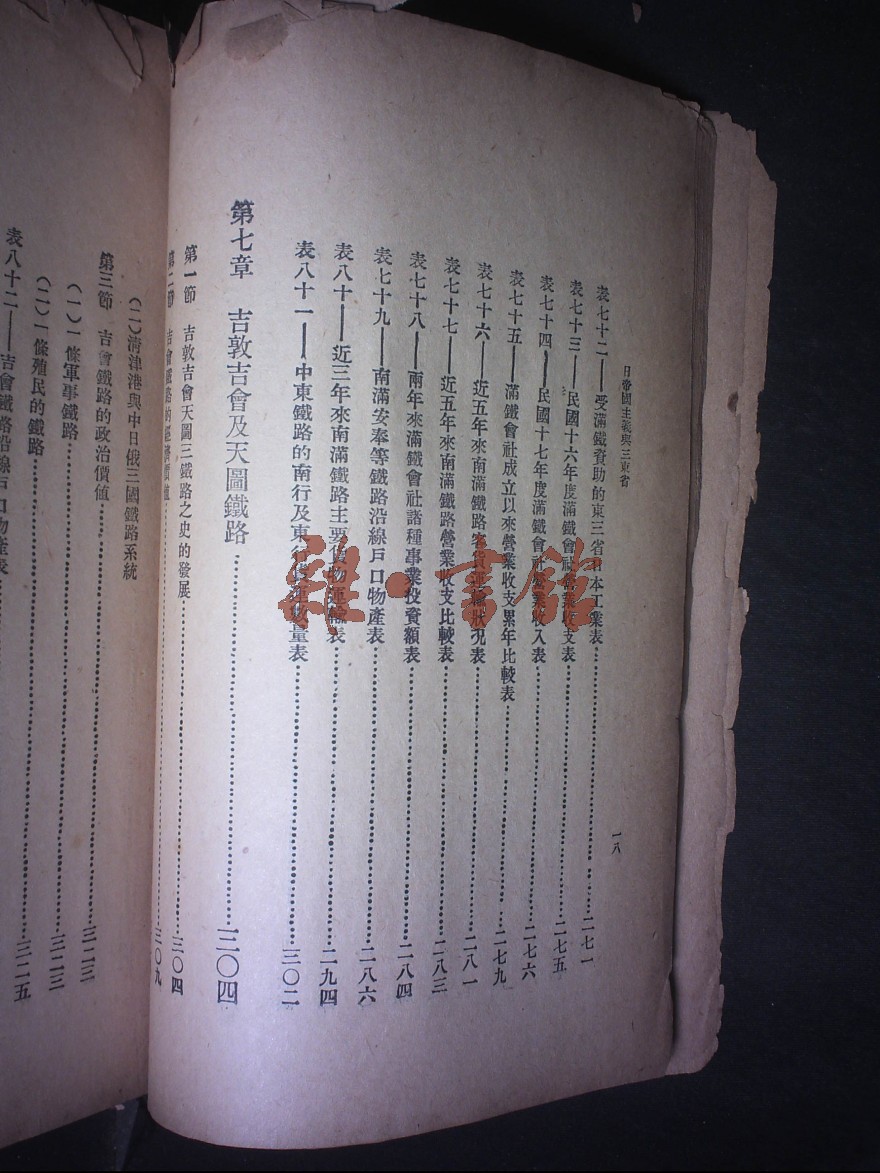 日帝國主義與三東省
一八
表七十二——受滿鐵資助的東三省日本工業表……二七一
表七十三——民國十六年度滿鐵會社營業收支表……二七五
表七十四——民國十七年度滿鐵會社營業收入表……二七六
表七十五——滿鐵會社成立以來營業收支累年比較表……二七九
表七十六——近五年來南滿鐵路客貨運輸狀況表……二八一
表七十七——近五年來南滿鐵路營業收支比較表……二八三
表七十八——兩年來滿鐵會社諸種事業投資額表……二八四
表七十九——南滿安奉等鐵路沿線戶口物產表……二八六
表八十——近三年來南滿鐵路主要貨物運輸表……二九四
表八十一——中東鐵路的南行及東行貨運數量表……三〇二
第七章 吉敦吉會及天圖鐵路……三〇四
第一節 吉敦吉會天圖三鐵路之史的發展……三〇四
第二節 吉會鐵路的經濟價值……三〇九
(二)清津港與中日俄三國鐵路系統
第三節 吉會鐵路的政治價值……三二三
(一)一條軍事鐵路……三二三
(二)一條殖民的鐵路
表八十二——吉會鐵路沿線戶口物產表……三二五
雜·書館